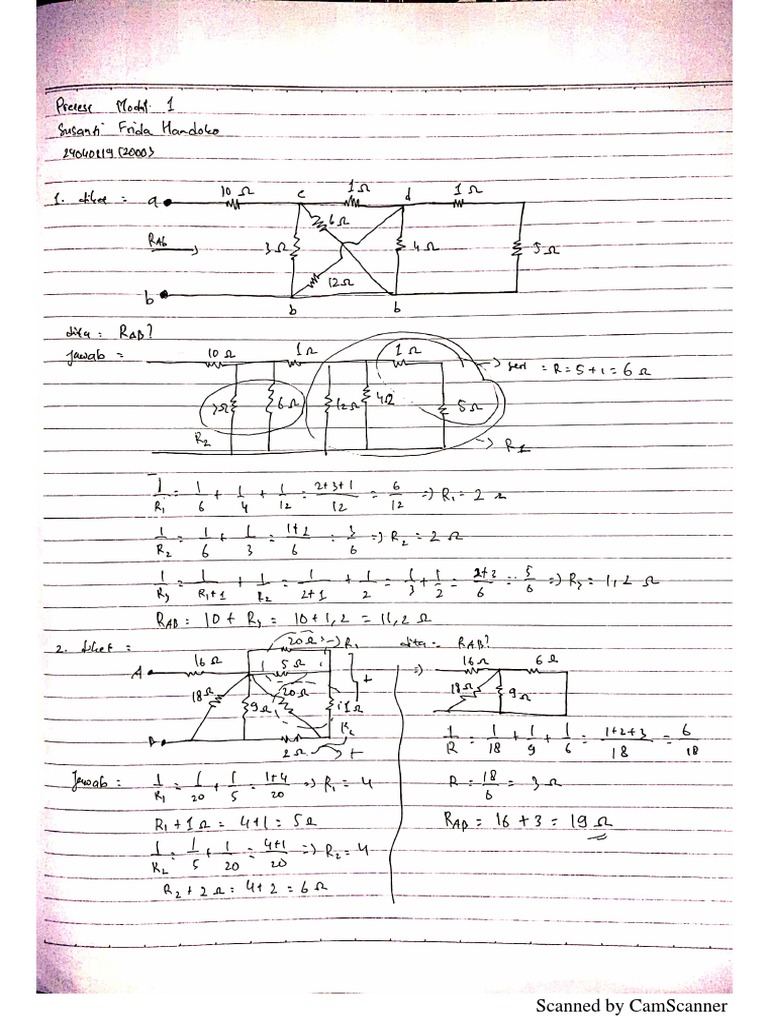 Pretest Modul 1
Susanti Frida Handoko
1. diket = a 10 Ω c 1 Ω d 1 Ω
RAb 3 Ω 6 Ω 4 Ω 5 Ω
12 Ω
b b b
dita = RAB?
Jawab = 10 Ω 1 Ω 1 Ω seri = R = 5 + 1 = 6 Ω
3 Ω 6 Ω 12 Ω 4 Ω 5 Ω
R2 R1
1/R1 = 1/6 + 1/4 + 1/12 = 2+3+1/12 = 6/12 => R1 = 2 Ω
1/R2 = 1/6 + 1/3 = 1+2/6 = 3/6 => R2 = 2 Ω
1/R3 = 1/R1+1 + 1/R2 = 1/2+1 + 1/2 = 1/3 + 1/2 = 2+3/6 = 5/6 => R3 = 1,2 Ω
RAB = 10 + R3 = 10 + 1,2 = 11,2 Ω
2. diket = 20 Ω R1 dita = RAB?
A 16 Ω 5 Ω + => 16 Ω 6 Ω
18 Ω 9 Ω 20 Ω 1 Ω 18 Ω 9 Ω
B R2
2 Ω +
1/R = 1/18 + 1/9 + 1/6 = 1+2+3/18 = 6/18
Jawab = 1/R1 = 1/20 + 1/5 = 1+4/20 => R1 = 4
R = 18/6 = 3 Ω
R1 + 1 Ω = 4 + 1 = 5 Ω
RAB = 16 + 3 = 19 Ω
1/R2 = 1/5 + 1/20 = 4+1/20 => R2 = 4
R2 + 2 Ω = 4 + 2 = 6 Ω
Scanned by CamScanner